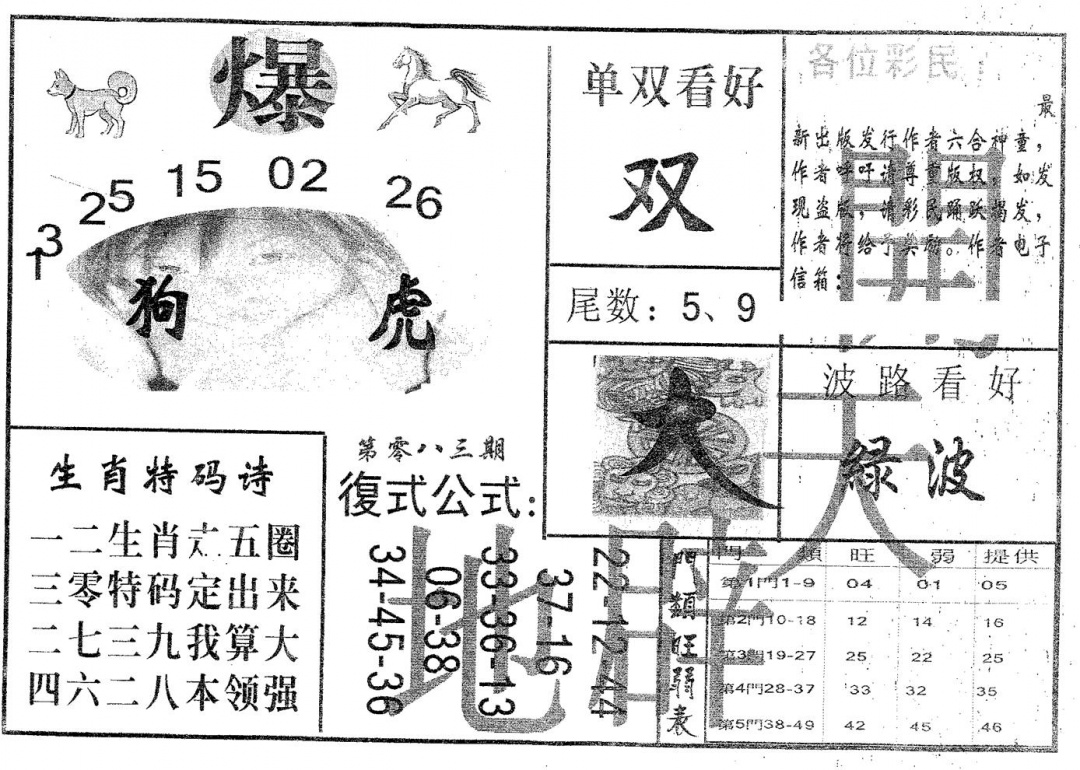 爆
13
25
15
02
26
狗
虎
单双看好
双
尾数：5、9
各位彩民：
最
新出版发行作者六合神童，
作者呼吁请尊重版权，如发
现盗版，请彩民踊跃揭发，
作者将给予奖励。作者电子
信箱：
大
波路看好
緑波
生肖特码诗
一二生肖六五圈
三零特码定出来
二七三九我算大
四六二八本领强
第零八三期
復式公式：
34-45-36
06-38
33-36-13
37-16
22-12-44
門類旺弱表
門 類 旺 弱 提供
第1門1-9 04 01 05
第2門10-18 12 14 16
第3門19-27 25 22 25
第4門28-37 33 32 35
第5門38-49 42 45 46
天
地